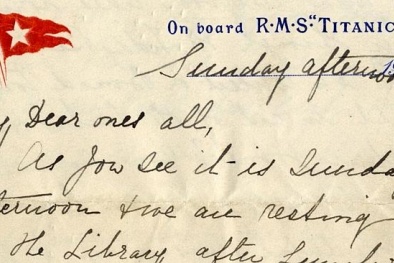 On board R·M·S·"TITANIC
Sunday afternoo
Dear ones all,
As you see it is Sunda
ternoon & we are resting
the Library after